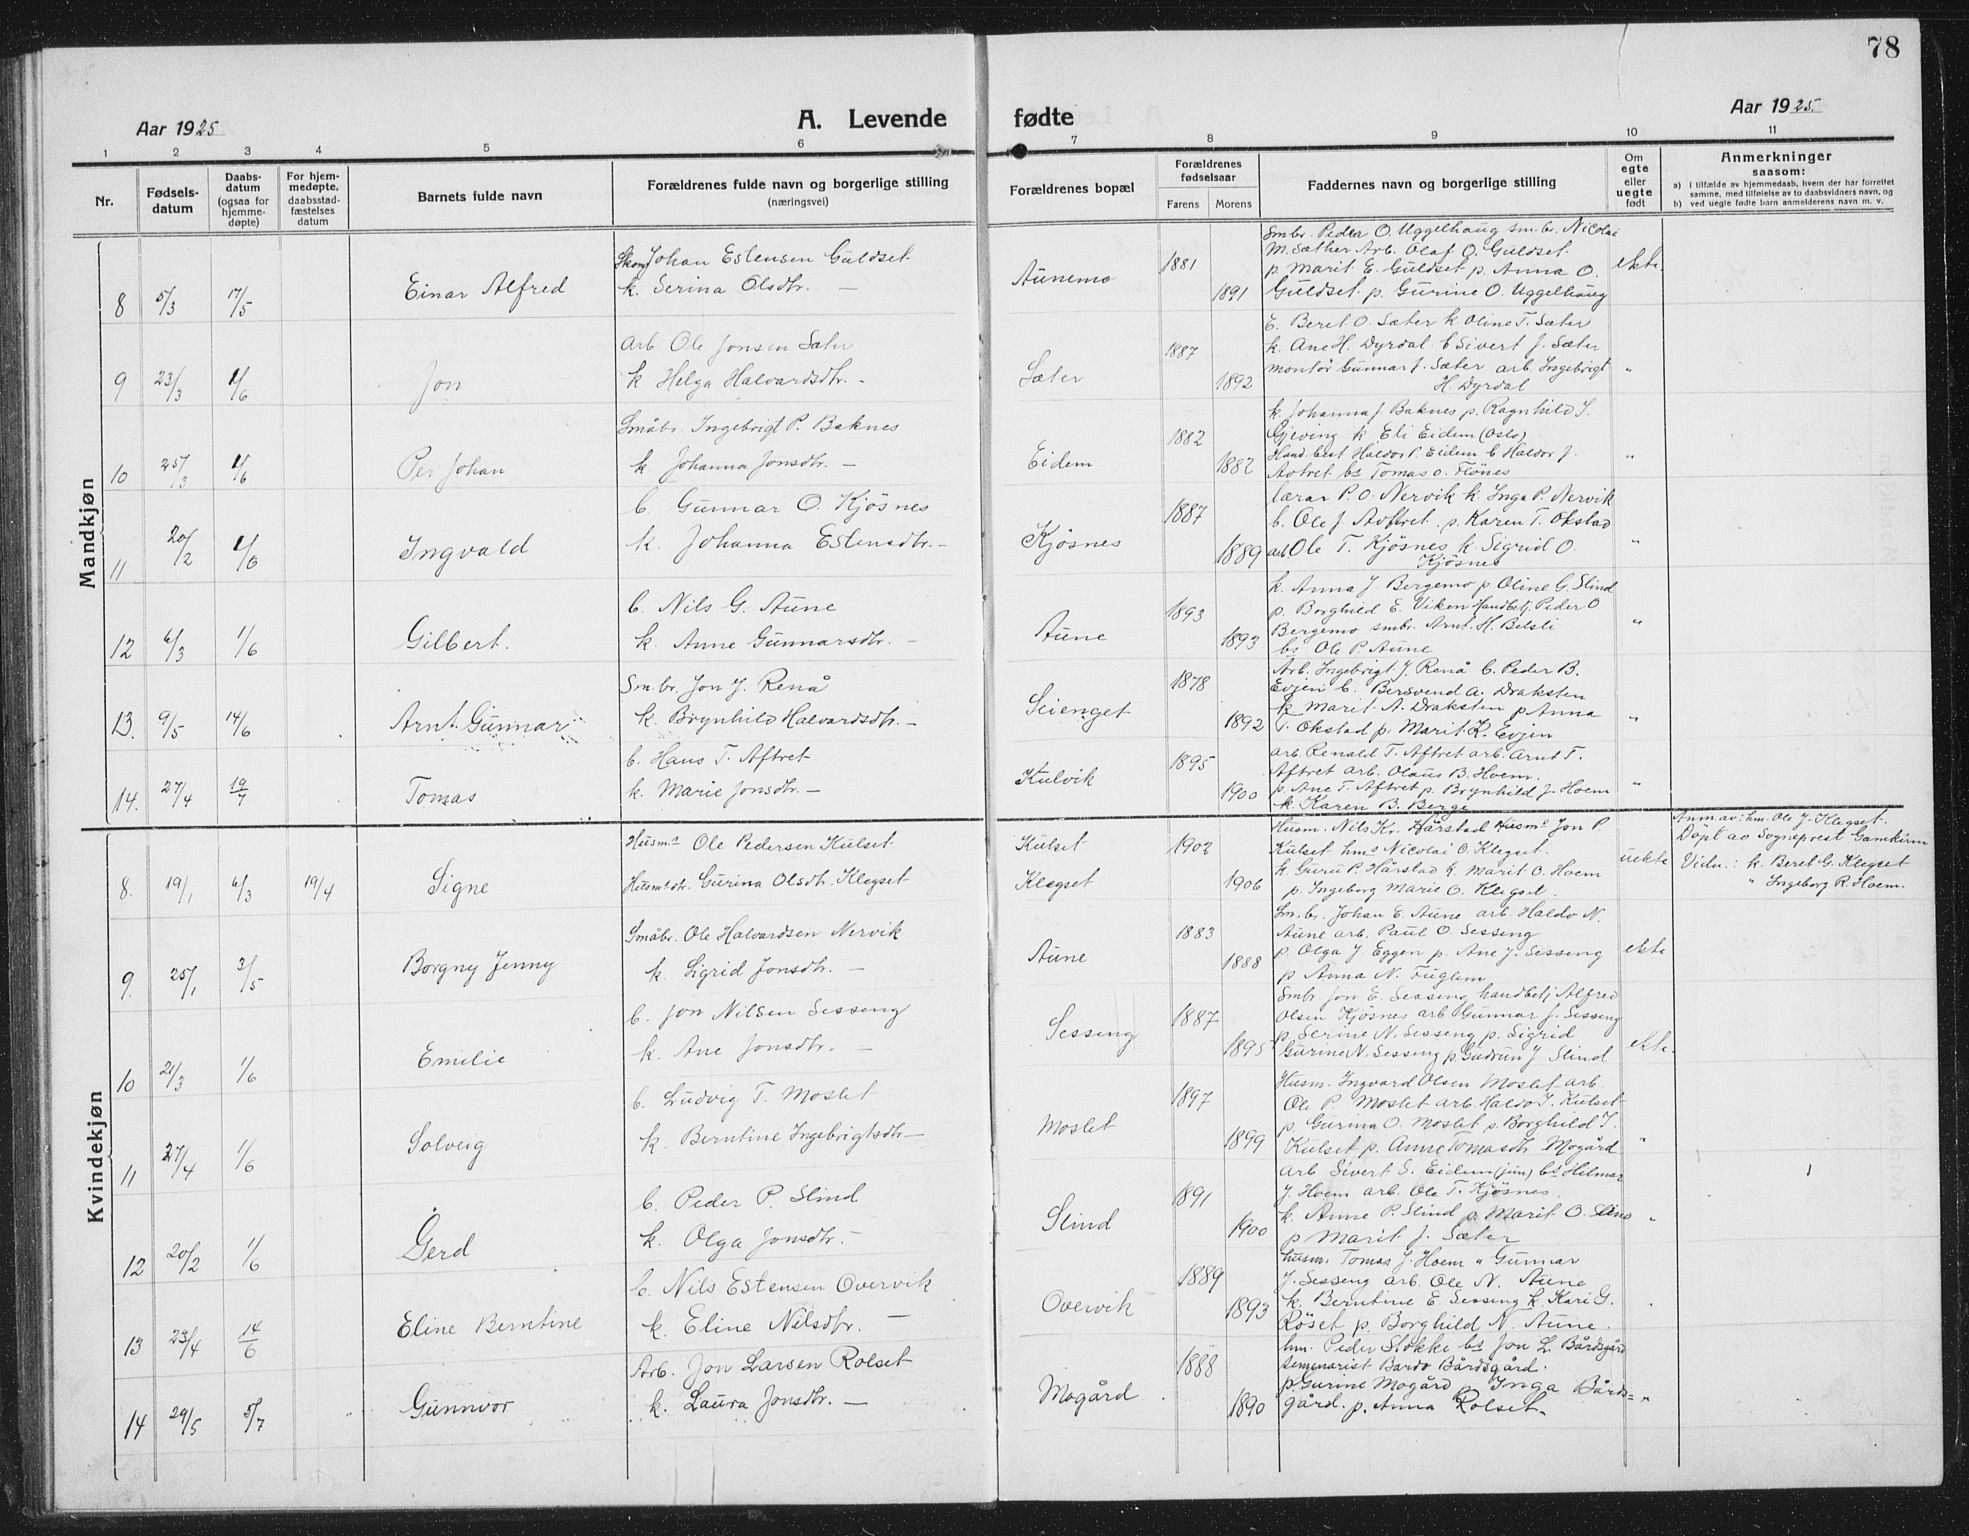 78
Aar 1925
A. Levende fødte
Aar 1925.
1 2 3 4 5 6 7 8 9 10 11
Nr.
Fødsels-
datum
Daabs-
datum
(ogsaa for
hjemme-
døpte)
For hjem-
medøpte,
daabsstad-
fæstelses
datum
Barnets fulde navn
Forældrenes fulde navn og borgerlige stilling
(næringsvei)
Forældrenes bopæl
Forældrenes
fødselsaar
Farens Morens
Faddernes navn og borgerlige stilling
Om
egte
eller
uegte
født
Anmerkninger
saasom:
a) i tilfælde av hjemmedaab, hvem der har forrettet
samme, med tilføielse av to daabsvidners navn, og
b) ved uegte fødte barn anmelderens navn m. v.
Mandkjøn
8 5/3 17/5 Einar Alfred
Skom Johan Estensen Guldset
k. Serina Olsdtr. —
Aunemo 1881 1891
Smbr. Peder O. Uggelhaug sm.br. Nicolai
M. Sæther Arb. Olaf O. Guldset.
p. Marit E. Guldset p. Anna O.
Guldset. p. Gurine O. Uggelhaug
ekte.
9 23/3 1/6 Jon
Arb Ole Jonsen Sæter
k Helga Halvardsdtr. -
Sæter 1887 1892
E. Beret O. Sæter k. Oline T. Sæter
k. Ane H. Dyrdal. b Sivert J. Sæter
montør Gunnar J. Sæter arb. Ingebrigt
H. Dyrdal
"
10 25/3 1/6 Per Johan
Småbr. Ingebrigt P. Baknes
k. Johanna Jonsdtr. —
Eidem 1882 1882
k. Johanna J. Baknes p. Ragnhild I.
Gjeving k. Eli Eidem (Oslo)
Hand.best Haldor P. Eidem b Haldor J.
Avtret bs Tomas O. Flönes
"
11 20/2 1/6 Ingvald
b. Gunnar O. Kjösnes
k. Johanna Estensdtr. -
Kjösnes 1887 1889
lærar P. O. Nervik k. Inga P. Nervik
b. Ole J. Avftret. p. Karen T. Okstad
arb Ole T. Kjösnes k. Sigrid O.
Kjösnes
"
12 6/3 1/6 Gilbert.
b. Nils G. Aune
k. Anne Gunnarsdtr. -
Aune 1893 1893
k. Anna J Bergemo p Oline G. Slind
p. Borghild E. Viken Handbetj. Peder O.
Bergemo smbr. Arnt. H. Belsli
bs Ole P. Aune
"
13. 9/5 14/6 Arnt Gunnar
Sm.br. Jon J. Renå
k. Brynhild Halvardsdtr. -
Seienget 1878 1892
Arb. Ingebrigt J. Renå b. Peder B.
Evjen b. Bersvend A. Draksten
k. Marit A. Draksten p Anna
T. Okstad p. Marit K. Evjen
"
14. 27/4 19/7 Tomas
b. Hans T. Aftret
k. Marie Jonsdtr. —
Kulvik 1895 1900
arb Renald T. Aftret arb. Arnt T.
Aftret arb. Olaus B. Hoem.
p. Ane T. Aftret p. Brynhild J. Hoem
k. Karen B. Berge
"
Kvindekjøn
8. 19/1 6/3 19/4 Signe
Husms Ole Pedersen Kulset
Husmsdtr. Gurina Olsdtr. Klegset
Kulset
Klegset 1902 1906
Husm. Nils Kr. Hårstad Husms Jon P
Kulset hms Nicolai O. Klegset.
k. Guru P. Hårstad k. Marit O. Hoem
p. Ingeborg Marie O. Klegset.
uekte
Anm.av: hm. Ole J. Klegset.
Döpt av Sogneprest Gamkinn
Vidn.: k. Beret G. Klegset
" Ingeborg R. Hoem.
9. 25/1 3/5 Borgny Jenny
Småbr. Ole Halvardsen Nervik
k. Sigrid Jonsdtr. —
Aune 1883 1888
Sm.br. Johan E. Aune arb. Haldo N.
Aune arb. Paul O. Sesseng
p. Olga J. Eggen p. Ane J. Sesseng
p Anna N. Fuglem
ekte
10 21/3 1/6 Emelie
b. Jon Nilsen Sesseng
k. Ane Jonsdtr. —
Sesseng 1887 1895
Smbr Jon E. Sesseng handbetj Alfred
Olsen Kjösnes arb Gunnar J. Sesseng
p. Serine N. Sesseng p. Sigrid
Gurine N. Sesseng p. Gudrun J Slind
ekte.
11 27/4 1/6 Solveig
b. Ludvig T. Moslet
k. Berntine Ingebrigtsdtr —
Moslet 1897 1899
Husm. Ingvard Olsen Moslet arb.
Ole P. Moslet arb. Haldo I. Kulset
p. Gurina O. Moslet p. Borghild I.
Kulset p. Anne Tomasdtr Mogård
"
12 20/2 1/6 Gerd
b. Peder P. Slind
k. Olga Jonsdtr. -
Slind 1891 1900
arb Sivert S. Eidem (jun) bs Hilmar
J. Hoem arb. Ole T. Kjösnes.
k. Anne P. Slind p. Marit O. Slind
p Marit J. Sæter
"
13 23/4 14/6 Eline Berntine
b. Nils Estensen Overvik
k. Eline Nilsdtr. —
Overvik 1889 1893
husm. Tomas J. Hoem " Gunnar
J. Sesseng arb. Ole N. Aune
k. Berntine E. Sesseng k. Kari G.
Röset p. Borghild N. Aune.
"
14 29/5 5/7 Gunnvor
Arb. Jon Larsen Rolset
k. Laura Jonsdtr. —
Mogård 1888 1890
hm. Peder Slokke bs Jon L. Bårdsgård
seminarist Bardo Bårdsgård.
p. Gurine Mogård p. Inga Bårds=
gård. p. Anna Rolset.
"